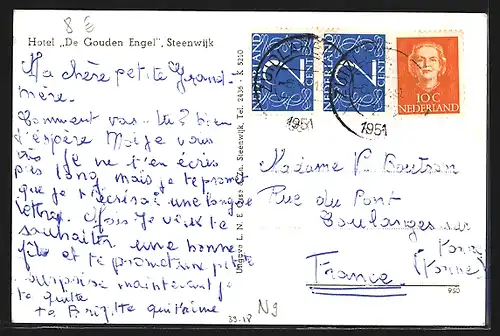 8
Hotel „De Gouden Engel", Steenwijk
Ma chère petite Grand-
mère.
Comment vas-tu? bien
j'espère Moi je vous
Je ne t'en écris
pas long mais je te promet
que je t'écrirai une longue
lettre. Mais je veux te
souhaiter une bonne
fête et te promettre petite
surprise maintenant je
te quitte
ta Brig!tte qui t'aime
Uitgave L. N. E. Steenwijk, Tel. 2436 K 5250
NEDERLAND
CENT
NEDERLAND
CENT
10 C
NEDERLAND
1951
1951
Madame V. Boutron
Rue du Pont
Coulanges sur
Yonne
(Yonne)
France
950
39.18 N9